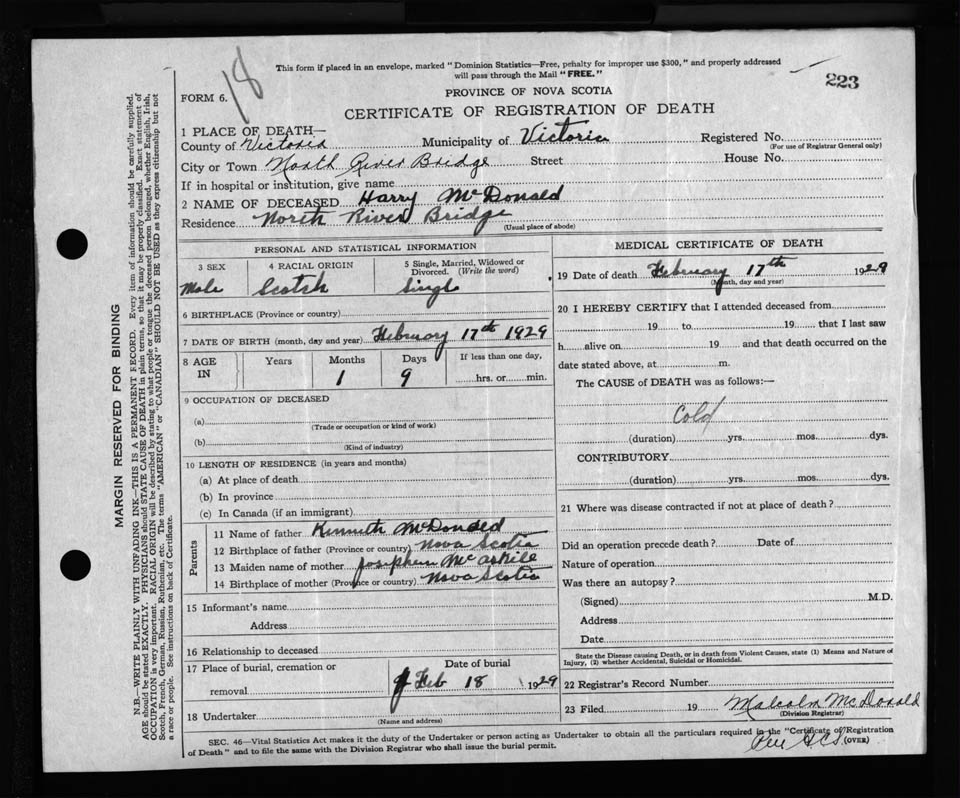 18
This form if placed in an envelope, marked "Dominion Statistics—Free, penalty for improper use $300," and properly addressed
will pass through the Mail "FREE."
223
FORM 6.
PROVINCE OF NOVA SCOTIA
CERTIFICATE OF REGISTRATION OF DEATH
1 PLACE OF DEATH—
County of Victoria Municipality of Victoria Registered No.
(For use of Registrar General only)
City or Town North River Bridge Street House No.
If in hospital or institution, give name
2 NAME OF DECEASED Harry McDonald
Residence North River Bridge
(Usual place of abode)
PERSONAL AND STATISTICAL INFORMATION
3 SEX 4 RACIAL ORIGIN 5 Single, Married, Widowed or
Divorced. (Write the word)
Male Scotch Single
6 BIRTHPLACE (Province or country)
7 DATE OF BIRTH (month, day and year) February 17th 1929
8 AGE Years Months Days If less than one day,
IN 1 9 hrs. or min.
9 OCCUPATION OF DECEASED
(a)
(Trade or occupation or kind of work)
(b)
(Kind of industry)
10 LENGTH OF RESIDENCE (in years and months)
(a) At place of death
(b) In province
(c) In Canada (if an immigrant)
Parents
11 Name of father Kenneth McDonald
12 Birthplace of father (Province or country) Nova Scotia
13 Maiden name of mother Josephine McAskill
14 Birthplace of mother (Province or country) Nova Scotia
15 Informant's name
Address
16 Relationship to deceased
17 Place of burial, cremation or Date of burial
removal Feb 18 1929
18 Undertaker
(Name and address)
MEDICAL CERTIFICATE OF DEATH
19 Date of death February 17th 1929
(Month, day and year)
20 I HEREBY CERTIFY that I attended deceased from
19 to 19 that I last saw
h alive on 19 and that death occurred on the
date stated above, at m.
The CAUSE of DEATH was as follows:—
Cold
(duration) yrs. mos. dys.
CONTRIBUTORY
(duration) yrs. mos. dys.
21 Where was disease contracted if not at place of death?
Did an operation precede death? Date of
Nature of operation
Was there an autopsy?
(Signed) M.D.
Address
Date
State the Disease causing Death, or in death from Violent Causes, state (1) Means and Nature of
Injury, (2) whether Accidental, Suicidal or Homicidal.
22 Registrar's Record Number
23 Filed 19 Malcolm McDonald
(Division Registrar)
SEC. 46—Vital Statistics Act makes it the duty of the Undertaker or person acting as Undertaker to obtain all the particulars required in the "Certificate of Registration
of Death" and to file the same with the Division Registrar who shall issue the burial permit.
(OVER)
MARGIN RESERVED FOR BINDING
N.B.—WRITE PLAINLY WITH UNFADING INK—THIS IS A PERMANENT RECORD. Every item of information should be carefully supplied.
AGE should be stated EXACTLY. PHYSICIANS should STATE CAUSE OF DEATH in plain terms, so that it may be properly classified. Exact statement of
OCCUPATION is very important. RACIAL ORIGIN will be described by stating to what people or tongue the deceased person belonged, whether English, Irish,
Scotch, French, German, Russian, Ruthenian, etc. The terms "AMERICAN" or "CANADIAN" SHOULD NOT BE USED as they express citizenship but not
a race or people. See instructions on back of Certificate.